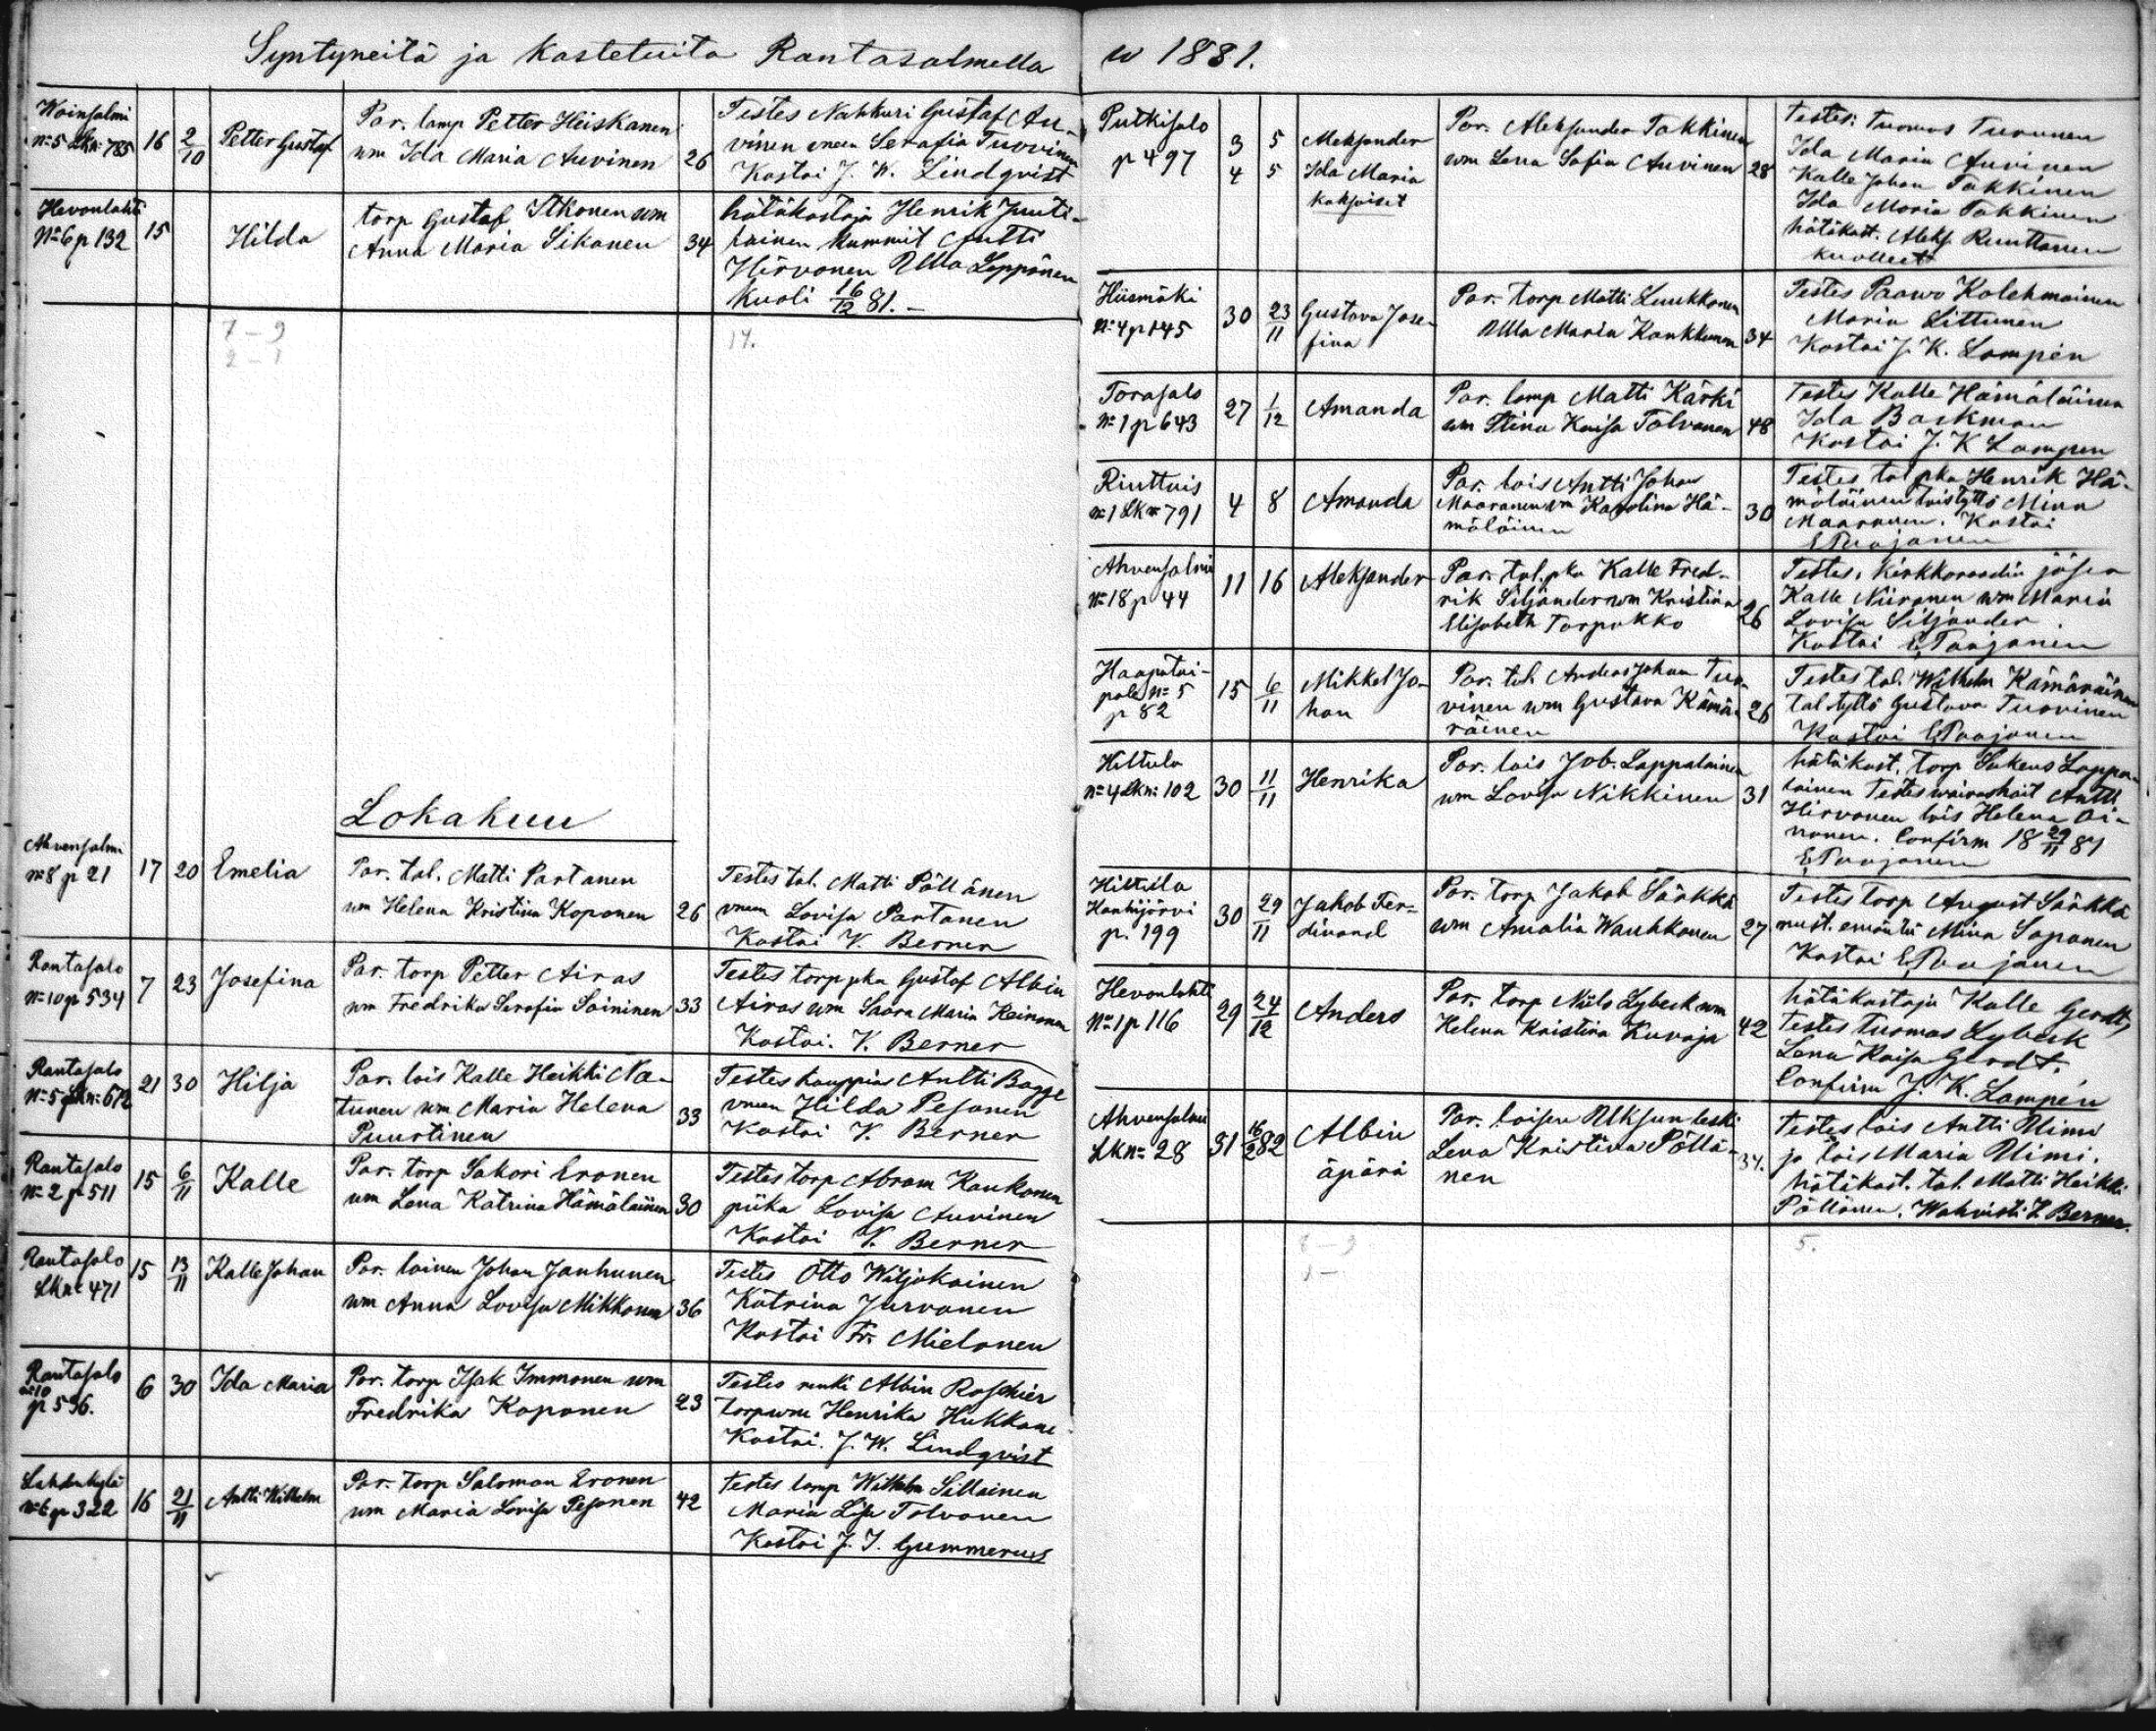 Syntyneitä ja Kastetuita Rantasalmella w 1881.
Woinsalmi
N:5 Lkn: 785 16 2/10 Petter Gustaf
Par. lamp Petter Heiskanen
wm Ida Maria Auvinen 26
Testes Nahkuri Gustaf Au-
vinen vmon Serafia Turvinen
Kastoi J. W. Lindqvist
Hevonlahti
N:6 p 132 15 Hilda
torp Gustaf Itkonen wm
Anna Maria Sikanen 34
hätäkastaja Henrik Juuti-
lainen kummit Antti
Hirvonen Ulla Leppänen
Kuoli 16/12 81.
7 – 9
2 – 1
17.
Lokakuu
Ahvensalmi
N:8 p 21 17 20 Emelia
Par. tal. Matti Partanen
wm Helena Kristina Koponen 26
Testes tal. Matti Pöllänen
vmon Lovisa Partanen
Kastoi V. Berner
Rantasalo
N:10 p 534 7 23 Josefina
Par. torp Petter Airas
wm Fredrika Serafia Soininen 33
Testes torp pka Gustaf Albin
Airas wm Saara Maria Heinonen
Kastoi. V. Berner
Rantasalo
N:5 Lkn: 612 21 30 Hilja
Par. lois Kalle Heikki Na-
tunen wm Maria Helena
Puurtinen 33
Testes kauppias Antti Bagge
vmon Hilda Pesonen
Kastoi V. Berner
Rantasalo
N:2 p 511 15 6/11 Kalle
Par. torp Sakari Eronen
wm Lena Katrina Hämäläinen 30
Testes torp Abram Kaukonen
piika Lovisa Auvinen
Kastoi V. Berner
Rantasalo
Lkn: 471 15 13/11 Kalle Johan
Par. loinen Johan Janhunen
wm Anna Lovisa Mikkonen 36
Testes Otto Wiljakainen
Katrina Jurvanen
Kastoi Fr. Mielonen
Rantasalo
N:10
p 536. 6 30 Ida Maria
Par. torp Isak Immonen wm
Fredrika Koponen 23
Testes renki Albin Roschier
torp wm Henrika Hukkane
Kastoi. J. W. Lindqvist
Lahdenkylä
N:6 p 322 16 21/11 Antti Wilhelm
Par. torp Salomon Eronen
wm Maria Lovisa Pesonen 42
Testes lamp Wilhelm Sillainen
Maria Lisa Tolvanen
Kastoi J. I. Gummerus
Putkisalo
p 497 3 5 Aleksander
4 5 Ida Maria
kaksoiset
Par. Aleksander Takkinen
wm Lena Sofia Auvinen 28
Testes: Tuomas Turunen
Ida Maria Auvinen
Kalle Johan Takkinen
Ida Maria Takkinen
hätäkast. Aleks. Ruuttanen
kuolleet
Hiismäki
N:4 p 145 30 23/11 Gustava Jose-
fina
Par. torp Matti Luukkonen
Ulla Maria Kankkunen 34
Testes Paavo Kolehmainen
Maria Littunen
Kastoi J. K. Lampén
Torasalo
N:1 p 643 27 1/12 Amanda
Par. lamp Matti Kärki
wm Stina Kaisa Tolvanen 48
Testes Kalle Hämäläinen
Ida Backman
Kastoi J. K Lampen
Rinttuis
N:1 Lkn 791 4 8 Amanda
Par. lois Antti Johan
Maaranen wm Karolina Hä-
mäläinen 30
Testes tal pka Henrik Hä-
mäläinen lois tyttö Miina
Maaranen. Kastoi
E Paajanen
Ahvensalmi
N:18 p 44 11 16 Aleksander
Par. tal. pka Kalle Fred-
rik Siljander wm Kristina
Elisabeth Torpakko 26
Testes. Kirkkoraadin jäsen
Kalle Niiranen wm Maria
Lovisa Siljander.
Kastoi E Paajanen
Haapatai-
pale N:5
p 82 15 6/11 Mikkel Jo-
han
Par. tal. Anders Johan Tur-
vinen wm Gustava Kämä-
räinen 26
Testes tal. Wilhelm Kämäräinen
tal tyttö Gustava Turvinen
Kastoi E Paajanen
Hiltula
N:4 Lkn: 102 30 11/11 Henrika
Par. lois Job. Lappalainen
wm Lovisa Nikkinen 31
hätäkast. torp Sakeus Lappa-
lainen Testes Antti
Hirvonen lois Helena Oi-
nonen. Confirm 18 29/11 81
E Paajanen
Hiltula
Hankijärvi
p. 199 30 29/11 Jakob Fer-
dinand
Par. torp Jakob Särkkä
wm Amalia Wauhkonen 27
Testes torp August Särkkä
must. emäntä Miina Soponen
Kastoi E Paajanen
Hevonlahti
N:1 p 116 29 24/12 Anders
Par. torp Niilo Lybeck wm
Helena Kristina Kuvaja 42
hätäkastaja Kalle Gerdt,
Testes Tuomas Lybeck
Lena Kaisa Gerdt.
Confirm J. K. Lampén
Ahvensalmi
Lkn: 28 31 16/2 82 Albin
äpärä
Par. loisen Uksun leski
Lena Kristina Pöllä-
nen 34.
Testes lois Antti Nimi
ja lois Maria Nimi.
hätäkast. tal. Matti Heikki
Pöllänen. Wahvisti V. Berner.
8 – 9
1 –
5.